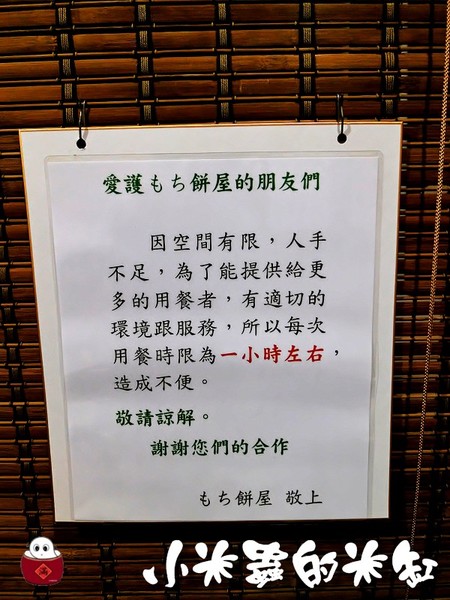 愛護もち餅屋的朋友們
因空間有限，人手
不足，為了能提供給更
多的用餐者，有適切的
環境跟服務，所以每次
用餐時限為一小時左右，
造成不便。
敬請諒解。
謝謝您們的合作
もち餅屋 敬上
小米蟲的米缸